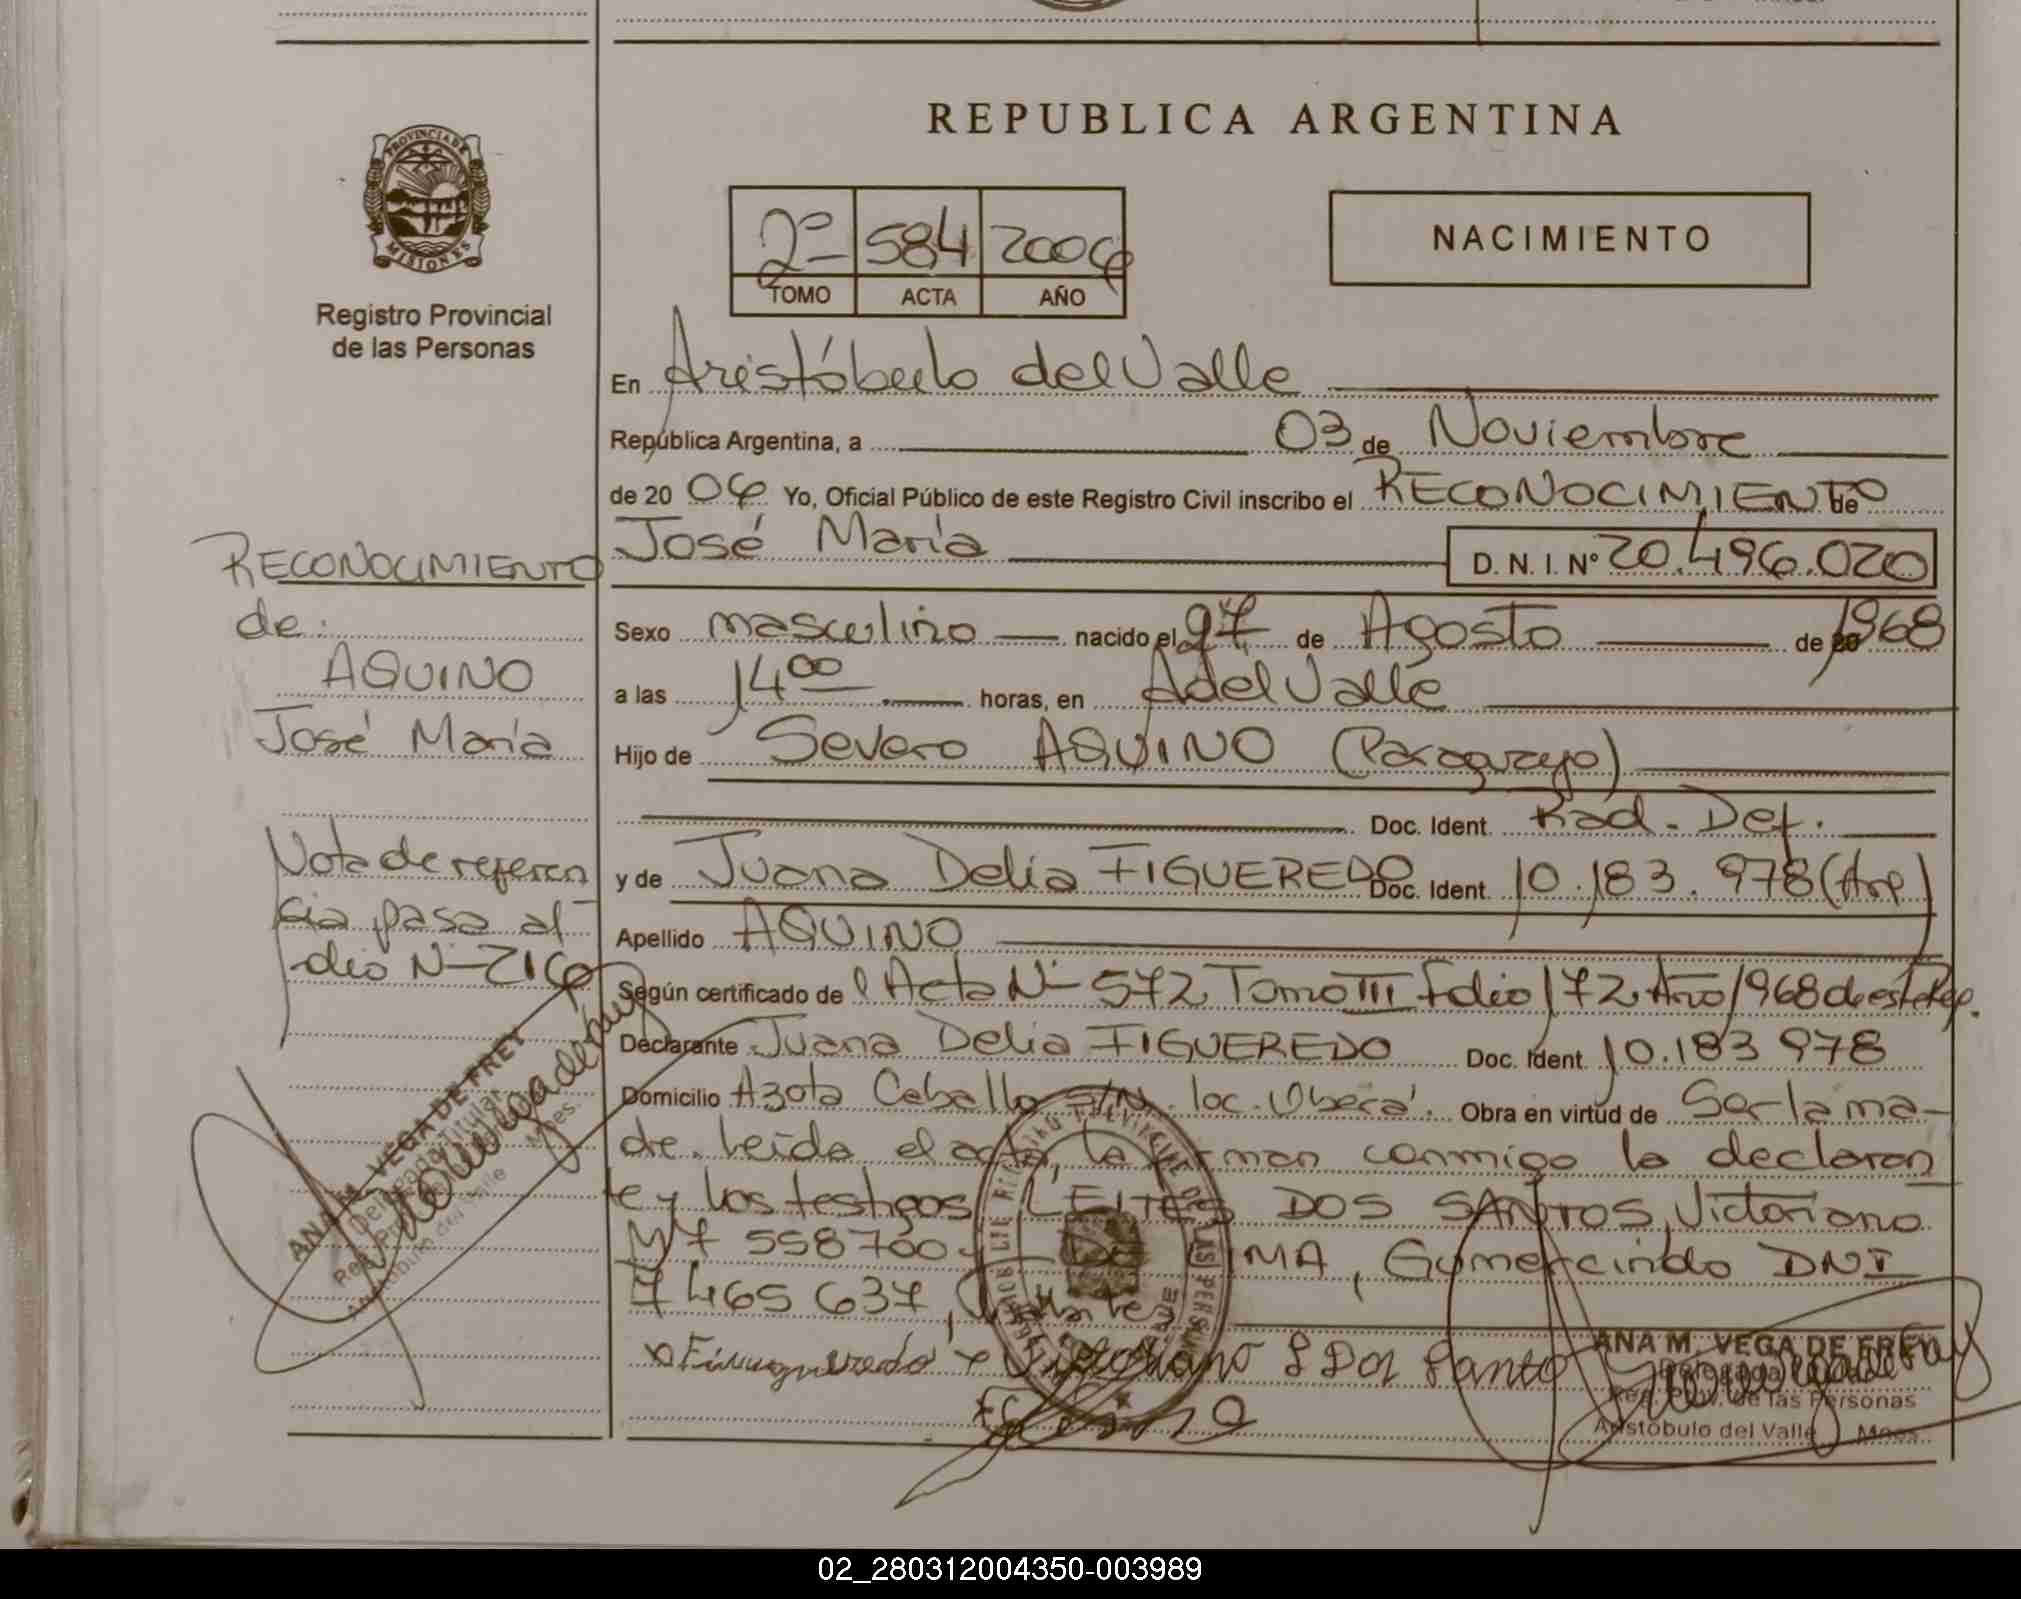 REPUBLICA ARGENTINA
PROVINCIA DE
MISIONES
Registro Provincial
de las Personas
2º 584 2006
TOMO ACTA AÑO
NACIMIENTO
En Aristóbulo del Valle
República Argentina, a 03 de Noviembre
de 20 06 Yo, Oficial Público de este Registro Civil inscribo el RECONOCIMIENTO de
José María D. N. I. Nº 20.496.020
Sexo masculino nacido el 27 de Agosto de 1968
a las 14 00 horas, en A del Valle
Hijo de Severo AQUINO (Paraguayo)
Doc. Ident. Rad. Def.
y de Juana Delia FIGUEREDO Doc. Ident. 10.183.978 (Arg)
Apellido AQUINO
Según certificado de l Acta Nº 572 Tomo III Folio 172 Año 1968 de este Reg.
Declarante Juana Delia FIGUEREDO Doc. Ident. 10.183 978
Domicilio Azota Caballo S/N. loc. Oberá. Obra en virtud de Ser la ma-
dre. Leída el acta, la firman conmigo la declaran
te y los testigos LEITES DOS SANTOS, Victoriano
M 7 558700 y DE LIMA, Gumercindo DNI
7 465 637,
x Fiuuguuredo x Victoriano L Dos Santo
ANA M. VEGA DE FREY
Delegada
Reg. Prov. de las Personas
Aristóbulo del Valle Mnes.
RECONOCIMIENTO
de:
AQUINO
José María
Nota de referen
cia pasa al
folio Nº 216
ANA M. VEGA DE FREY
Delegada Titular
Aristóbulo del Valle Mnes.
02_280312004350-003989